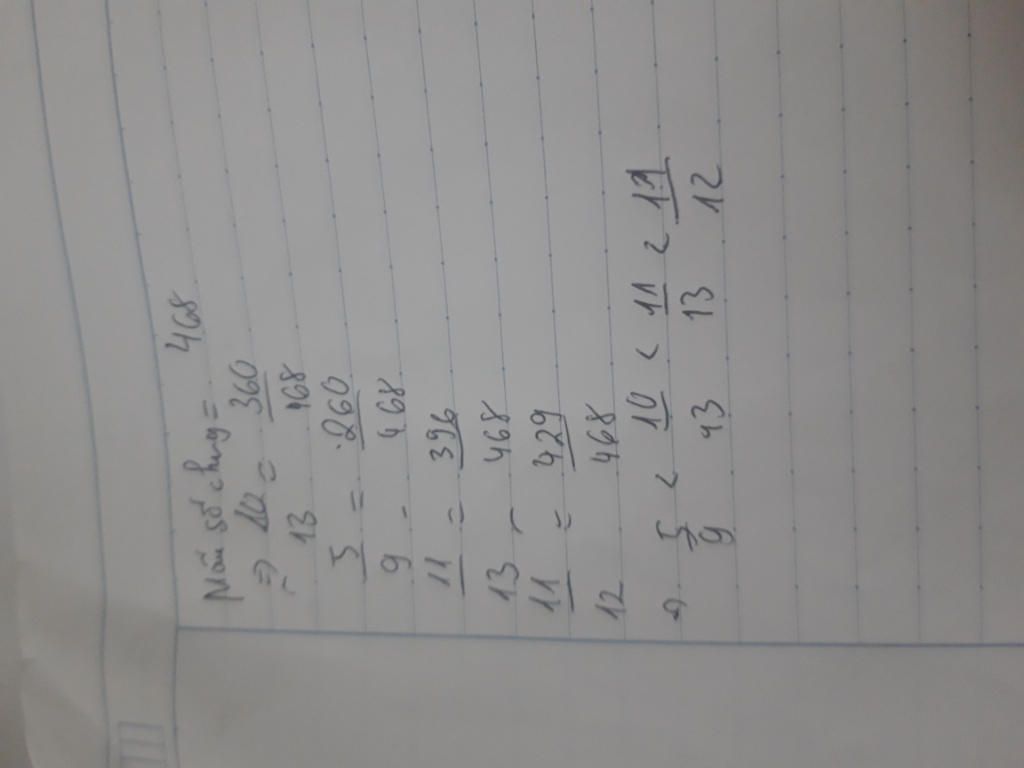 Mẫu số chung = 468
=> 10/13 = 360/468
5/9 = 260/468
11/13 = 396/468
11/12 = 429/468
=> 5/9 < 10/13 < 11/13 < 11/12